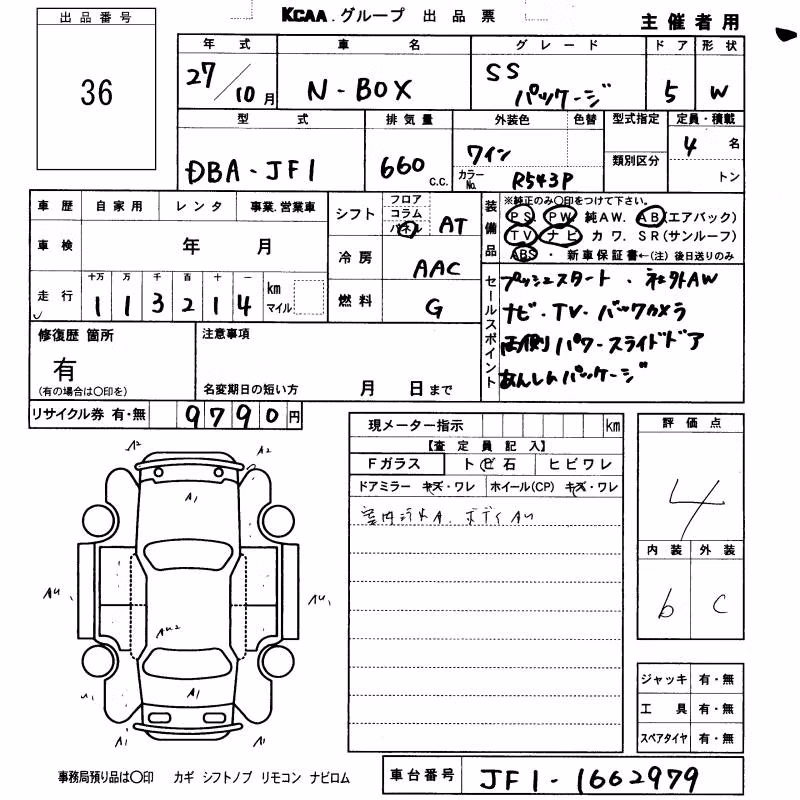 KCAA.グループ 出品票
主催者用
出品番号
36
年式 車名 グレード ドア 形状
27/10月 N-BOX SSパッケージ 5 W
型式 排気量 外装色 色替 型式指定 定員・積載
DBA-JF1 660 c.c. ワイン 類別区分 4名
カラーNo. R543P トン
車歴 自家用 レンタ 事業.営業車
車検 年 月
走行 十万 万 千 百 十 一 km マイル
1 1 3 2 1 4
シフト フロア コラム パネル AT
冷房 AAC
燃料 G
装備品 ※純正のみ○印をつけて下さい。
PS. PW 純AW. AB(エアバック)
TV ナビ カワ. SR(サンルーフ)
ABS ・ 新車保証書←(注) 後日送りのみ
セールスポイント
プッシュスタート . 社外AW
ナビ・TV・バックカメラ
両側パワースライドドア
あんしんパッケージ
修復歴 箇所 注意事項
有
(有の場合は○印を) 名変期日の短い方 月 日まで
リサイクル券 有・無 9790円
現メーター指示 km
【査定員記入】
Fガラス トビ石 ヒビワレ
ドアミラー キズ・ワレ ホイール(CP) キズ・ワレ
室内汚れA. ボディAU
評価点
4
内装 外装
b C
A2 A2
A1
AU AU
AU2
A1
A1 A1
ジャッキ 有・無
工具 有・無
スペアタイヤ 有・無
事務局預り品は○印 カギ シフトノブ リモコン ナビロム
車台番号 JF1-1662979